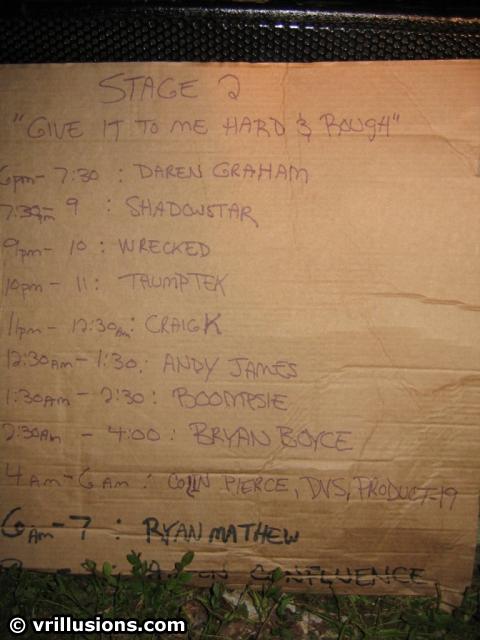 STAGE 2
"GIVE IT TO ME HARD & ROUGH"
6pm - 7:30 : DAREN GRAHAM
7:30pm - 9 : SHADOWSTAR
9pm - 10 : WRECKED
10pm - 11 : THUMPTEK
11pm - 12:30am : CRAIG K
12:30am - 1:30 : ANDY JAMES
1:30am - 2:30 : BOOMPSIE
2:30am - 4:00 : BRYAN BOYCE
4am - 6am : COLIN PIERCE, DVS, PRODUCT-19
6am - 7 : RYAN MATHEW
CONFLUENCE
© vrillusions.com